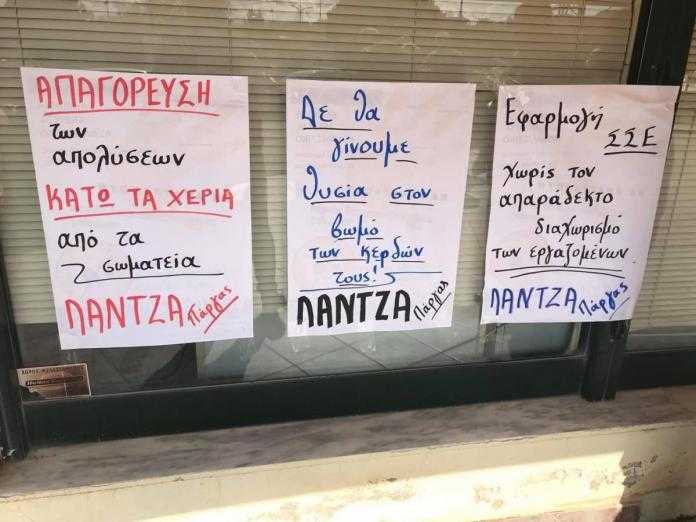 ΑΠΑΓΟΡΕΥΣΗ
των
απολύσεων
ΚΑΤΩ ΤΑ ΧΕΡΙΑ
από τα
σωματεία
ΛΑΝΤΖΑ Πάργας
Δε θα
γίνουμε
θυσία στον
βωμό
των κερδών
τους!
ΛΑΝΤΖΑ Πάργας
Εφαρμογή
ΣΣΕ
χωρίς τον
απαράδεκτο
διαχωρισμό
των εργαζομένων
ΛΑΝΤΖΑ Πάργας